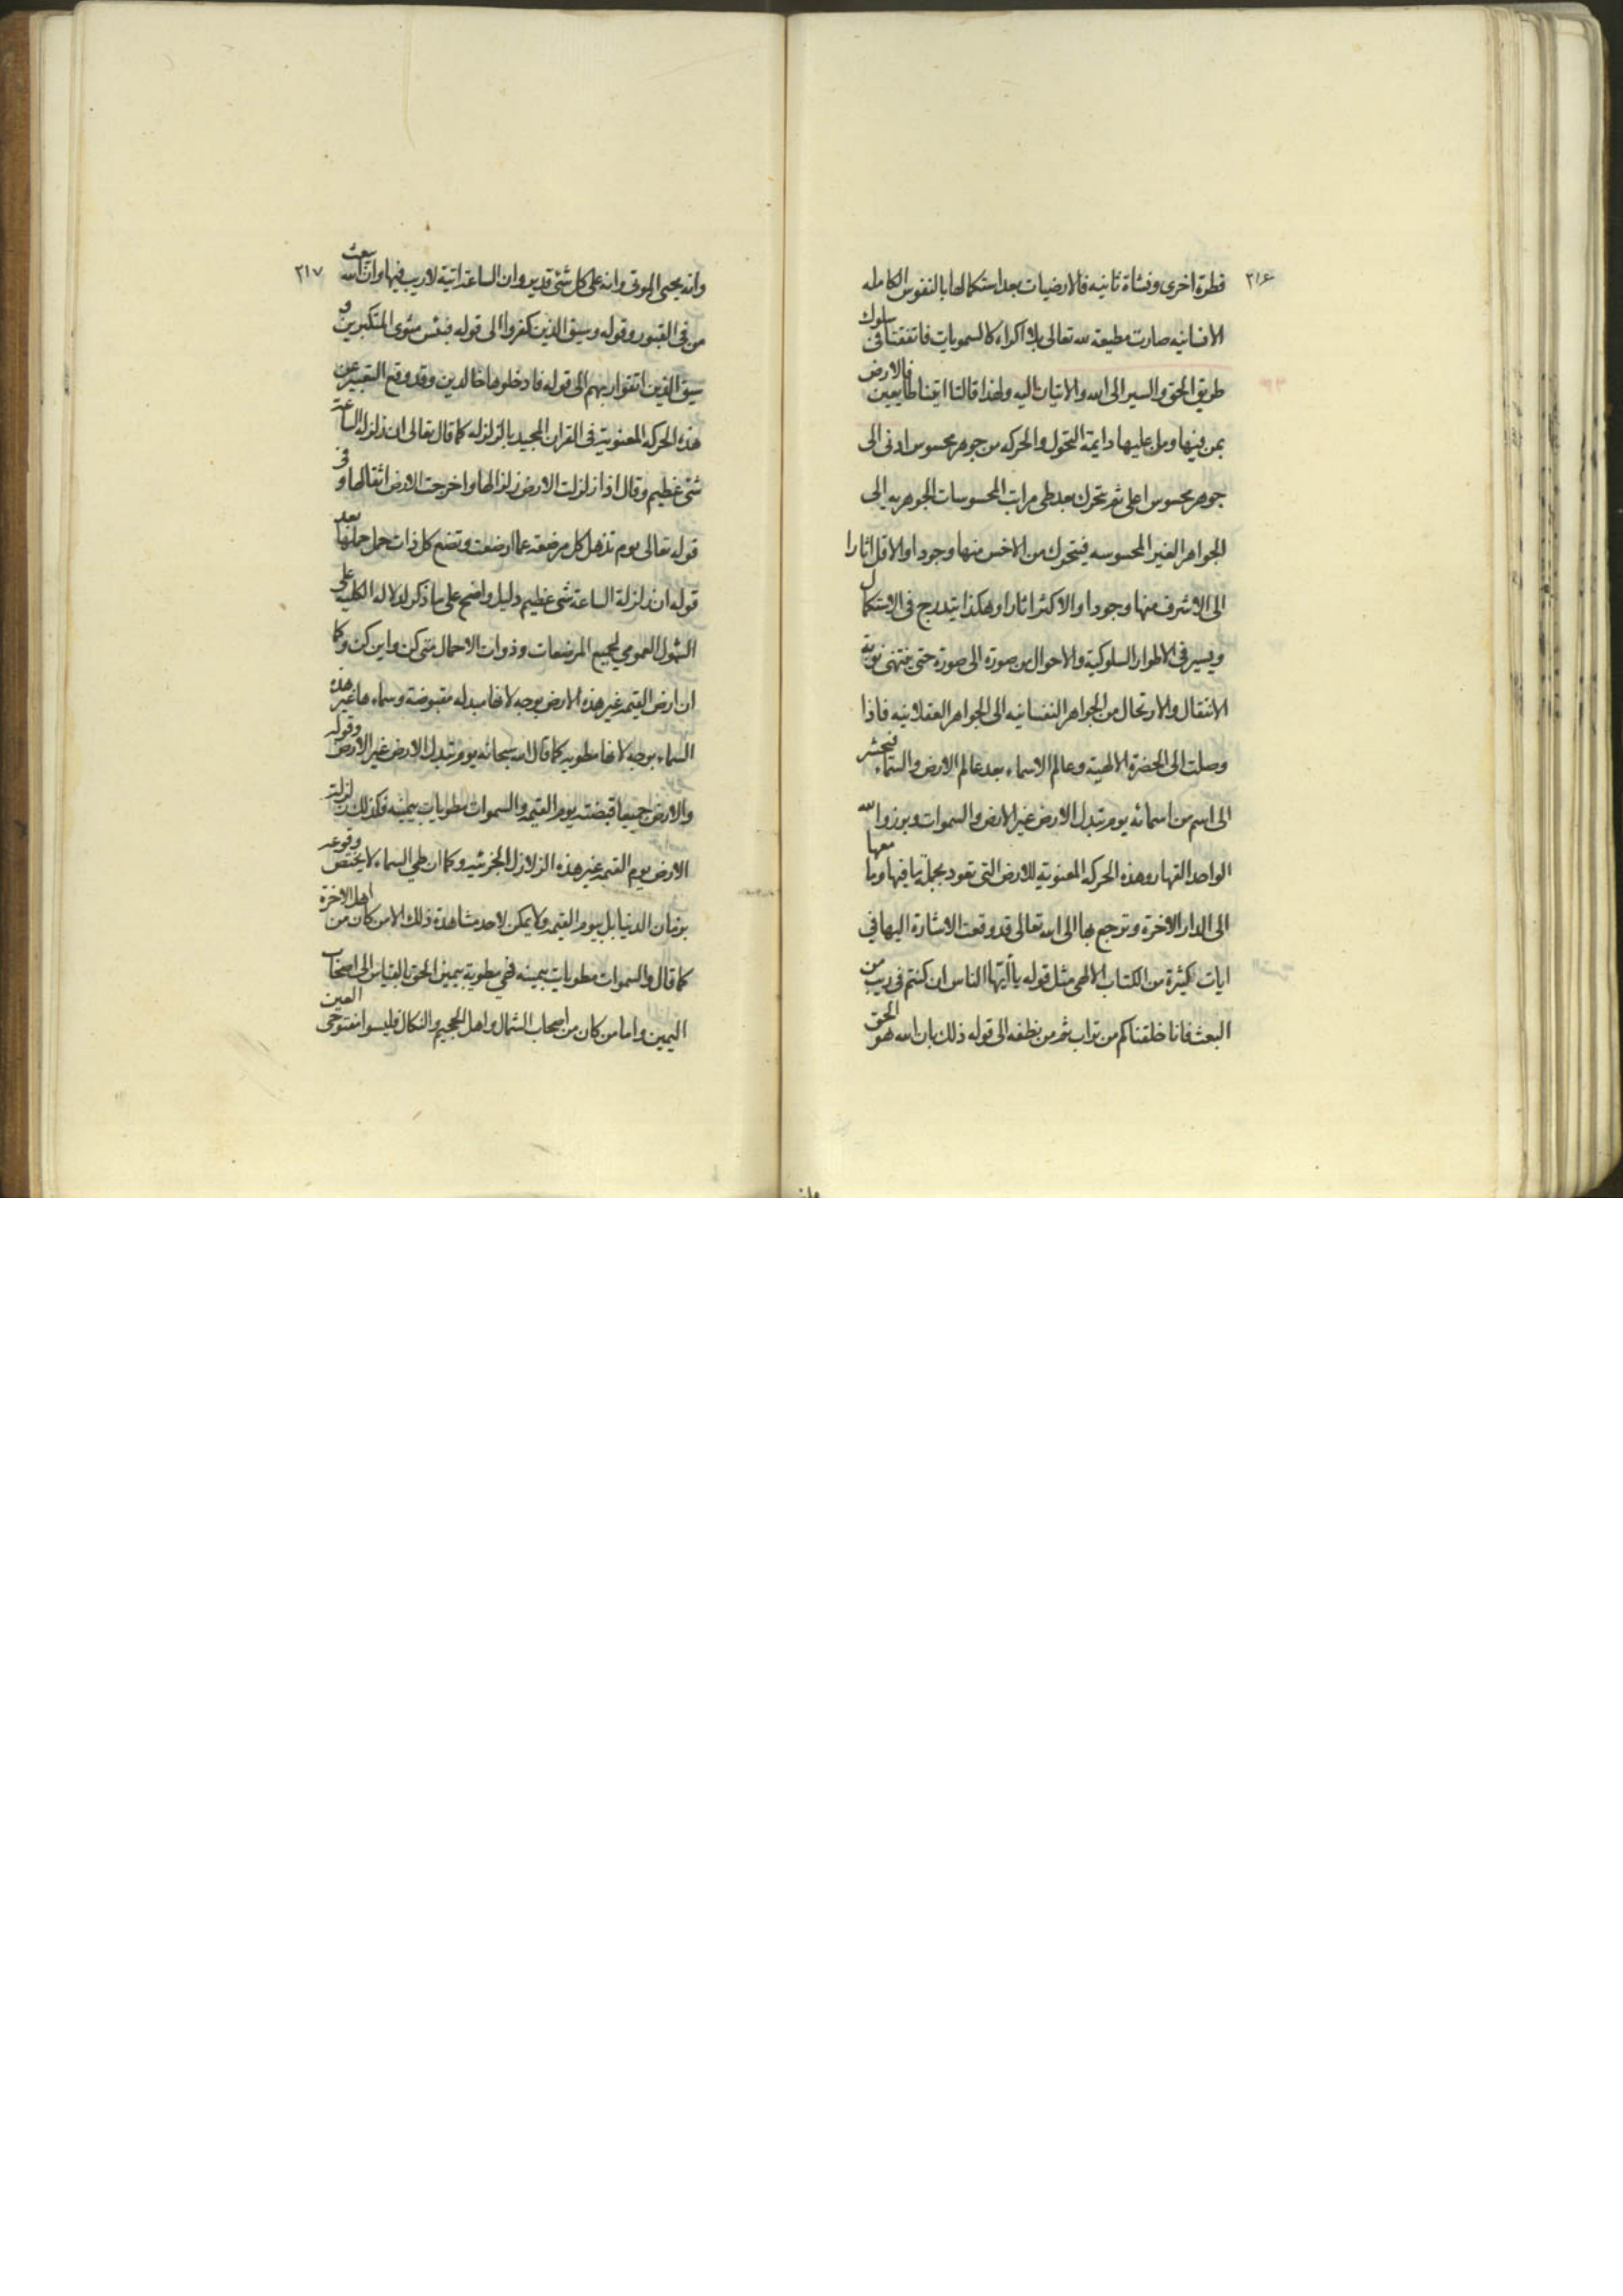 ٢١۶
فطرة اخرى ونشاة ثانيه فالارضيات بعد استكمالها بالنفوس الكامله
الانسانيه صارت مطيعة لله تعالى بلا اكراه كالسمويات فاتفقتا فى سلوك
طريق الحق والسير الى الله والاتيان اليه ولهذا قالتا اتينا طايعين فالارض
بمن فيها ومن عليها دايمة التحول والحركه من جوهر محسوس ادنى الى
جوهر محسوس اعلى ثم تتحرك بعد طى مراتب المحسوسات الجوهريه الى
الجواهر الغير المحسوسه فيتحول من الاخس منها وجودا والاقل اثارا
الى الاشرف منها وجودا والاكثر اثارا وهكذا يتدرج فى الاستكمال
ويسير فى الاطوار السلوكية والاحوال من صورة الى صورة حتى ينتهى نوبة
الانتقال والارتحال من الجواهر النفسانيه الى الجواهر العقلانيه فاذا
وصلت الى الحضرة الالهية وعالم الاسماء بعد عالم الارض والسماء فيحشر
الى اسم من اسمائه يوم تبدل الارض غير الارض والسموات وبرزوا لله
الواحد القهار وهذه الحركه المعنوية للارض التى تعود بجملة ما فيها وما معها
الى الدار الاخرة وترجع بها الى الله تعالى قد وقعت الاشارة اليها في
ايات كثيرة من الكتاب الالهى مثل قوله يا ايّها الناس ان كنتم فى ريب من
البعث فانا خلقناكم من تراب ثم من نطفه الى قوله ذلك بان الله هو الحق
٢١٧
وانه يحيى الموتى وانه على كل شئ قدير وان الساعة اتية لا ريب فيها وان الله يبعث
من فى القبور وقوله وسيق الذين كفروا الى قوله فبئس مثوى المتكبرين و
سيق الذين اتقوا ربهم الى قوله فادخلوها خالدين وقد وقع التعبير عن
هذه الحركه المعنوية فى القران المجيد بالزلزله كما قال تعالى ان زلزله الساعة
شئ عظيم وقال اذا زلزلت الارض زلزالها واخرجت الارض اثقالها و فى
قوله تعالى يوم تذهل كل مرضعه عما ارضعت وتضع كل ذات حمل حملها بعد
قوله ان زلزلة الساعة شى عظيم دليل واضح على ما ذكر لدلاله الكلية على
الشمول العمومي لجميع المرضعات وذوات الاحمال متى كن واين كن وكما
ان ارض القيمه غير هذه الارض بوجه لانها مبدله مقبوضة وسماءها غير هذه
السماء بوجه لانها مطويه كما قال الله سبحانه يوم تبدل الارض غير الارض وقوله
والارض جميعا قبضته يوم القيمه والسموات مطويات بيمينه فكذلك زلزلة
الارض يوم القيمه غير هذه الزلازل الجزئيه وكما ان طي السماء لا يختص وقوعه
بزمان الدنيا بل بيوم القيمه ولا يمكن لاحد مشاهدة ذلك الا من كان من اهل الاخرة
كما قال والسموات مطويات بيمينه فهي مطوية بيمين الحق بالقياس الى اصحاب
اليمين واما من كان من اصحاب الشمال واهل الجحيم والنكال فليسوا مفتوحى العين